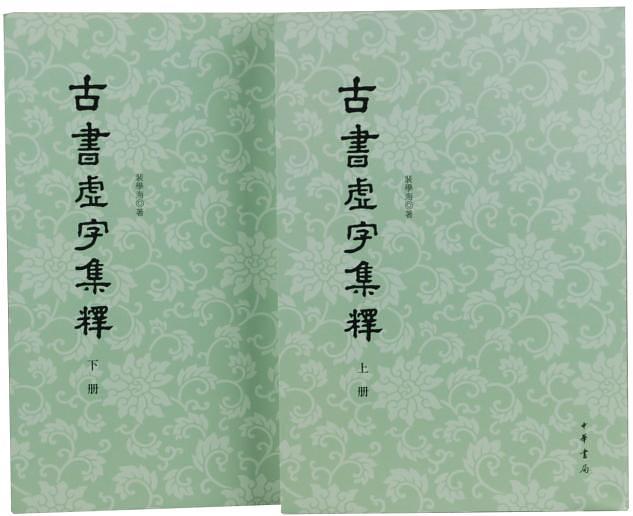 古書虛字集釋
裴學海◎著
上册
中華書局
古書虛字集釋
裴學海◎著
下册